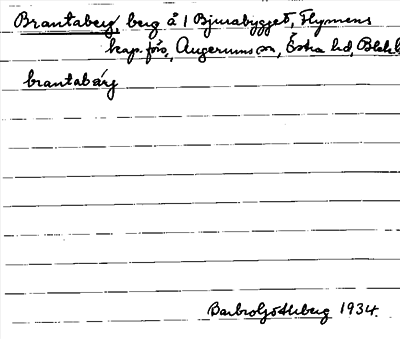 Brantaberg, berg å 1 Bjurabygget, Flymens
kap. förs., Augerums sn, Östra hd, Blek
brantabärg
Barbro Göthberg 1934.